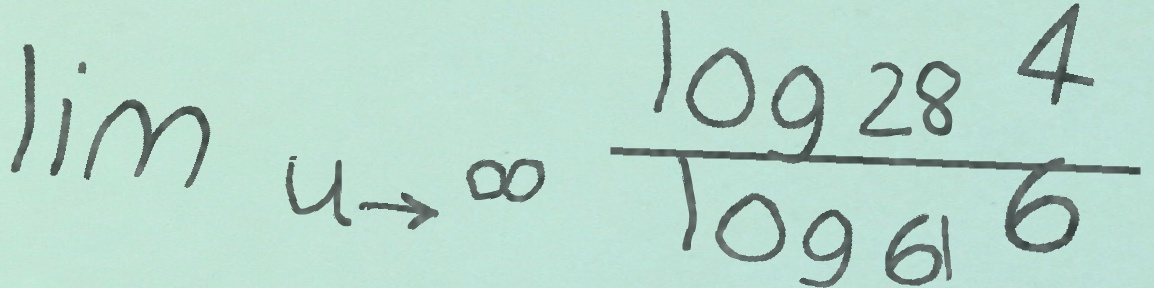 \lim_{u \to \infty} \frac{\log_{28} 4}{\log_{61} 6}